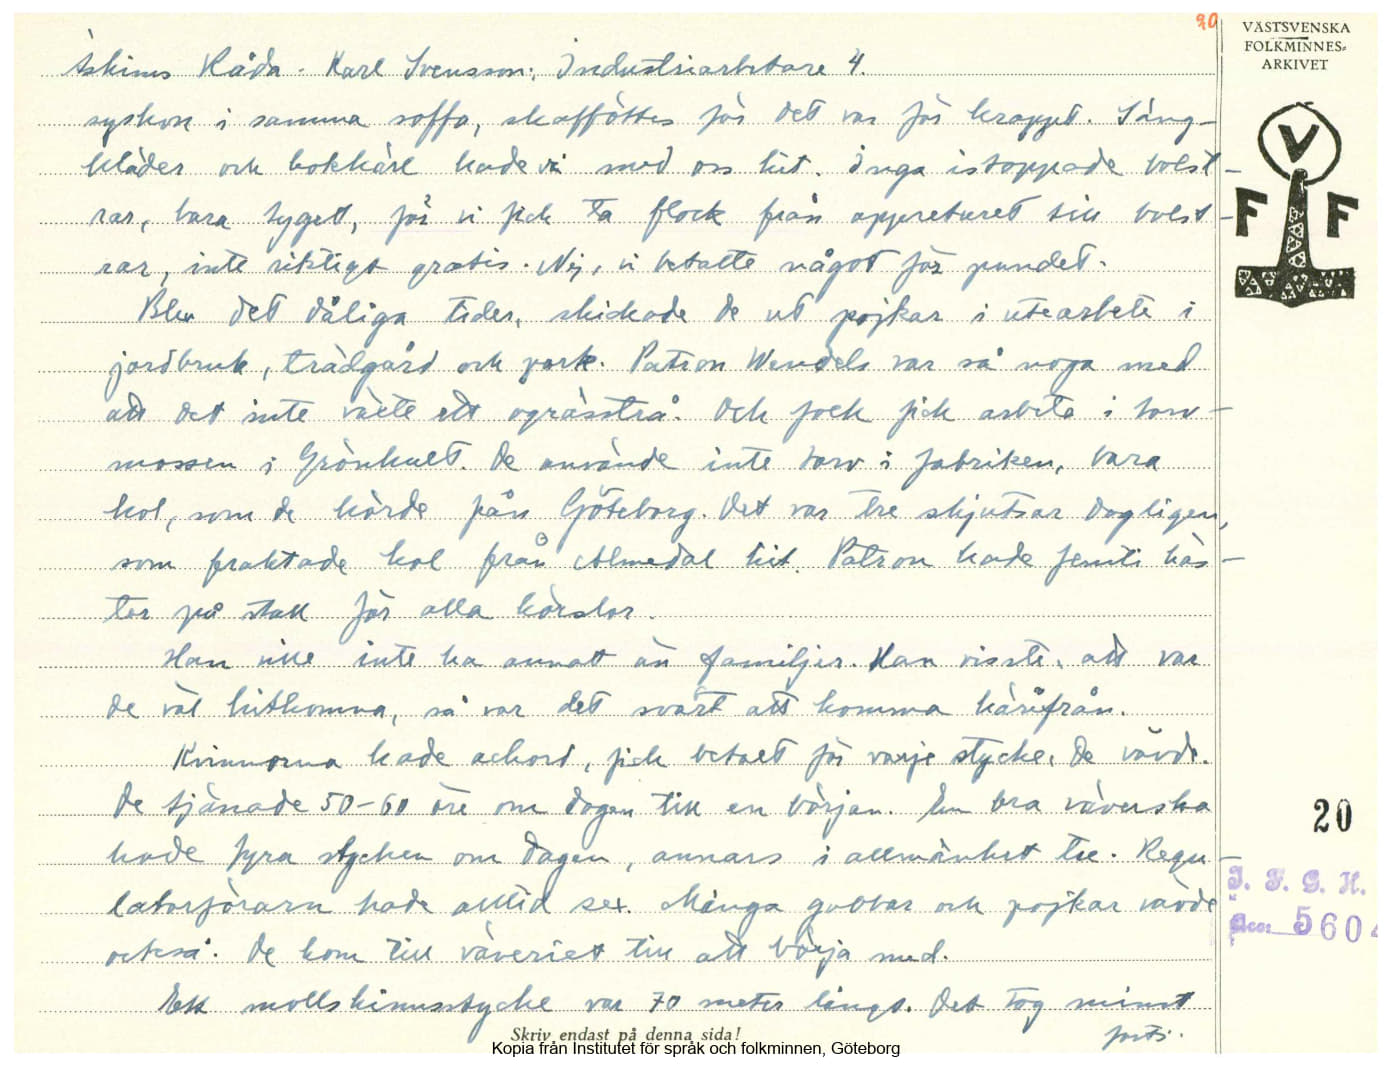 20
VÄSTSVENSKA
FOLKMINNES-
ARKIVET
Askims Råda. Karl Svensson, Industriarbetare 4.
syskon i samma soffa, skaffötters för det var för knappt. Säng-
kläder och kokkärl hade vi med oss hit. Inga istoppade bolst-
rar, bara tyget, för vi fick ta flock från appreturet till bolst-
rar, inte riktigt gratis. Nej, vi betalte något för pundet.
Blev det dåliga tider, skickade de ut pojkar i utearbete i
jordbruk, trädgård och park. Patron Wendels var så noga med
att det inte växte ett ogrässtrå. Och folk fick arbete i torv-
mossen i Grönhult. De använde inte torv i fabriken, bara
kol, som de körde från Göteborg. Det var tre skjutsar dagligen,
som fraktade kol från Almedal hit. Patron hade femti häs-
ter på stall för alla körslor.
Han ville inte ha annat än familjer. Han visste, att var
de väl hitkomna, så var det svårt att komma härifrån.
Kvinnorna hade ackord, fick betalt för varje stycke, de vävde.
De tjänade 50-60 öre om dagen till en början. En bra väverska
hade fyra stycken om dagen, annars i allmänhet tre. Regu-
latorförarn hade alltid sex. Många gubbar och pojkar vävde
också. De kom till väveriet till att börja med.
Ett mollskinnsstycke var 70 meter långt. Det tog minst
forts.
V
F F
20
I. F. G. H.
Acc. 5604
Skriv endast på denna sida!
Kopia från Institutet för språk och folkminnen, Göteborg